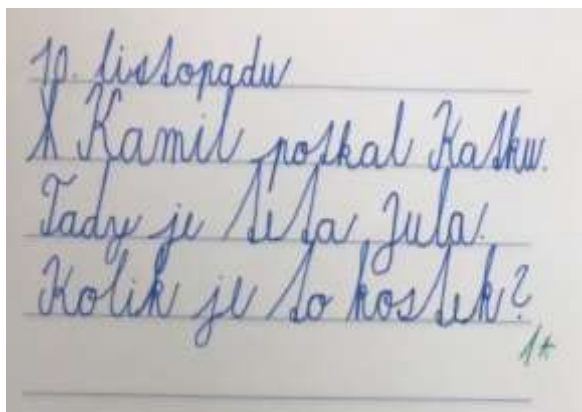 10. listopadu
X Kamil potkal Katku.
Tady je teta Jula.
Kolik je to kostek?
1*